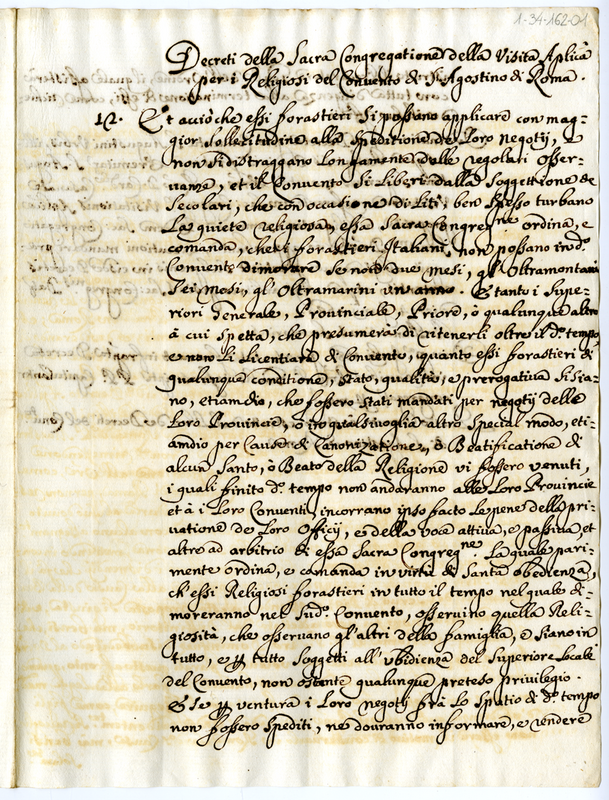 1-34-162-01
Decreti della Sacra Congregatione della Visita Aplicà
per i Religiosi del Convento di S. Agostino di Roma.
12. Et acciò che essi forastieri si possano applicare con mag=
gior sollecitudine alla speditione de loro negotij, e
non si distraggano longamente dalle regolari osser=
vanze, et il Convento si liberi dalla soggettione de
secolari, che con occasione di liti, ben spesso turbano
la quiete religiosa, essa Sacra Congreg.ne ordina, e
comanda, che i forastieri Italiani, non possano in d.o
Convento dimorare se non due mesi, gl'Oltramontani
sei mesi, gl'Oltramarini un anno. Et tanto i supe=
riori Generale, Provinciale, Priore, ò qualunque altro
à cui spetta, che presumerà di ritenerli oltre il d.o tempo,
e non li licentiare di Convento, quanto essi forastieri di
qualunque conditione, stato, qualità, e prerogativa si sia=
no, etiamdio, che fossero stati mandati per negotij delle
loro Provincie, ò in qualsivoglia altro special modo, eti=
amdio per cause di Canonizatione, ò Beatificatione di
alcun Santo, ò Beato della Religione vi fossero venuti,
i quali finito d.o tempo non andaranno alle loro Provincie
et à i loro Conventi, incorrano ipso facto le pene della pri=
vatione de loro officij, e della voce attiva, e passiva, et
altre ad arbitrio di essa Sacra Congreg.ne. La quale pari=
mente ordina, e comanda in virtù di santa obedienza,
ch'essi Religiosi forastieri in tutto il tempo nel quale di=
moreranno nel sud.o Convento, osservino quella Reli=
giosità, che osservano gl'altri della famiglia, e siano in
tutto, e ꝑ tutto soggetti all'ubidienza del superiore locale
del Convento, non ostante qualunque preteso privilegio.
E se ꝑ ventura i loro negotij frà lo spatio di d.o tempo
non fossero spediti, ne dovranno informare, e rendere